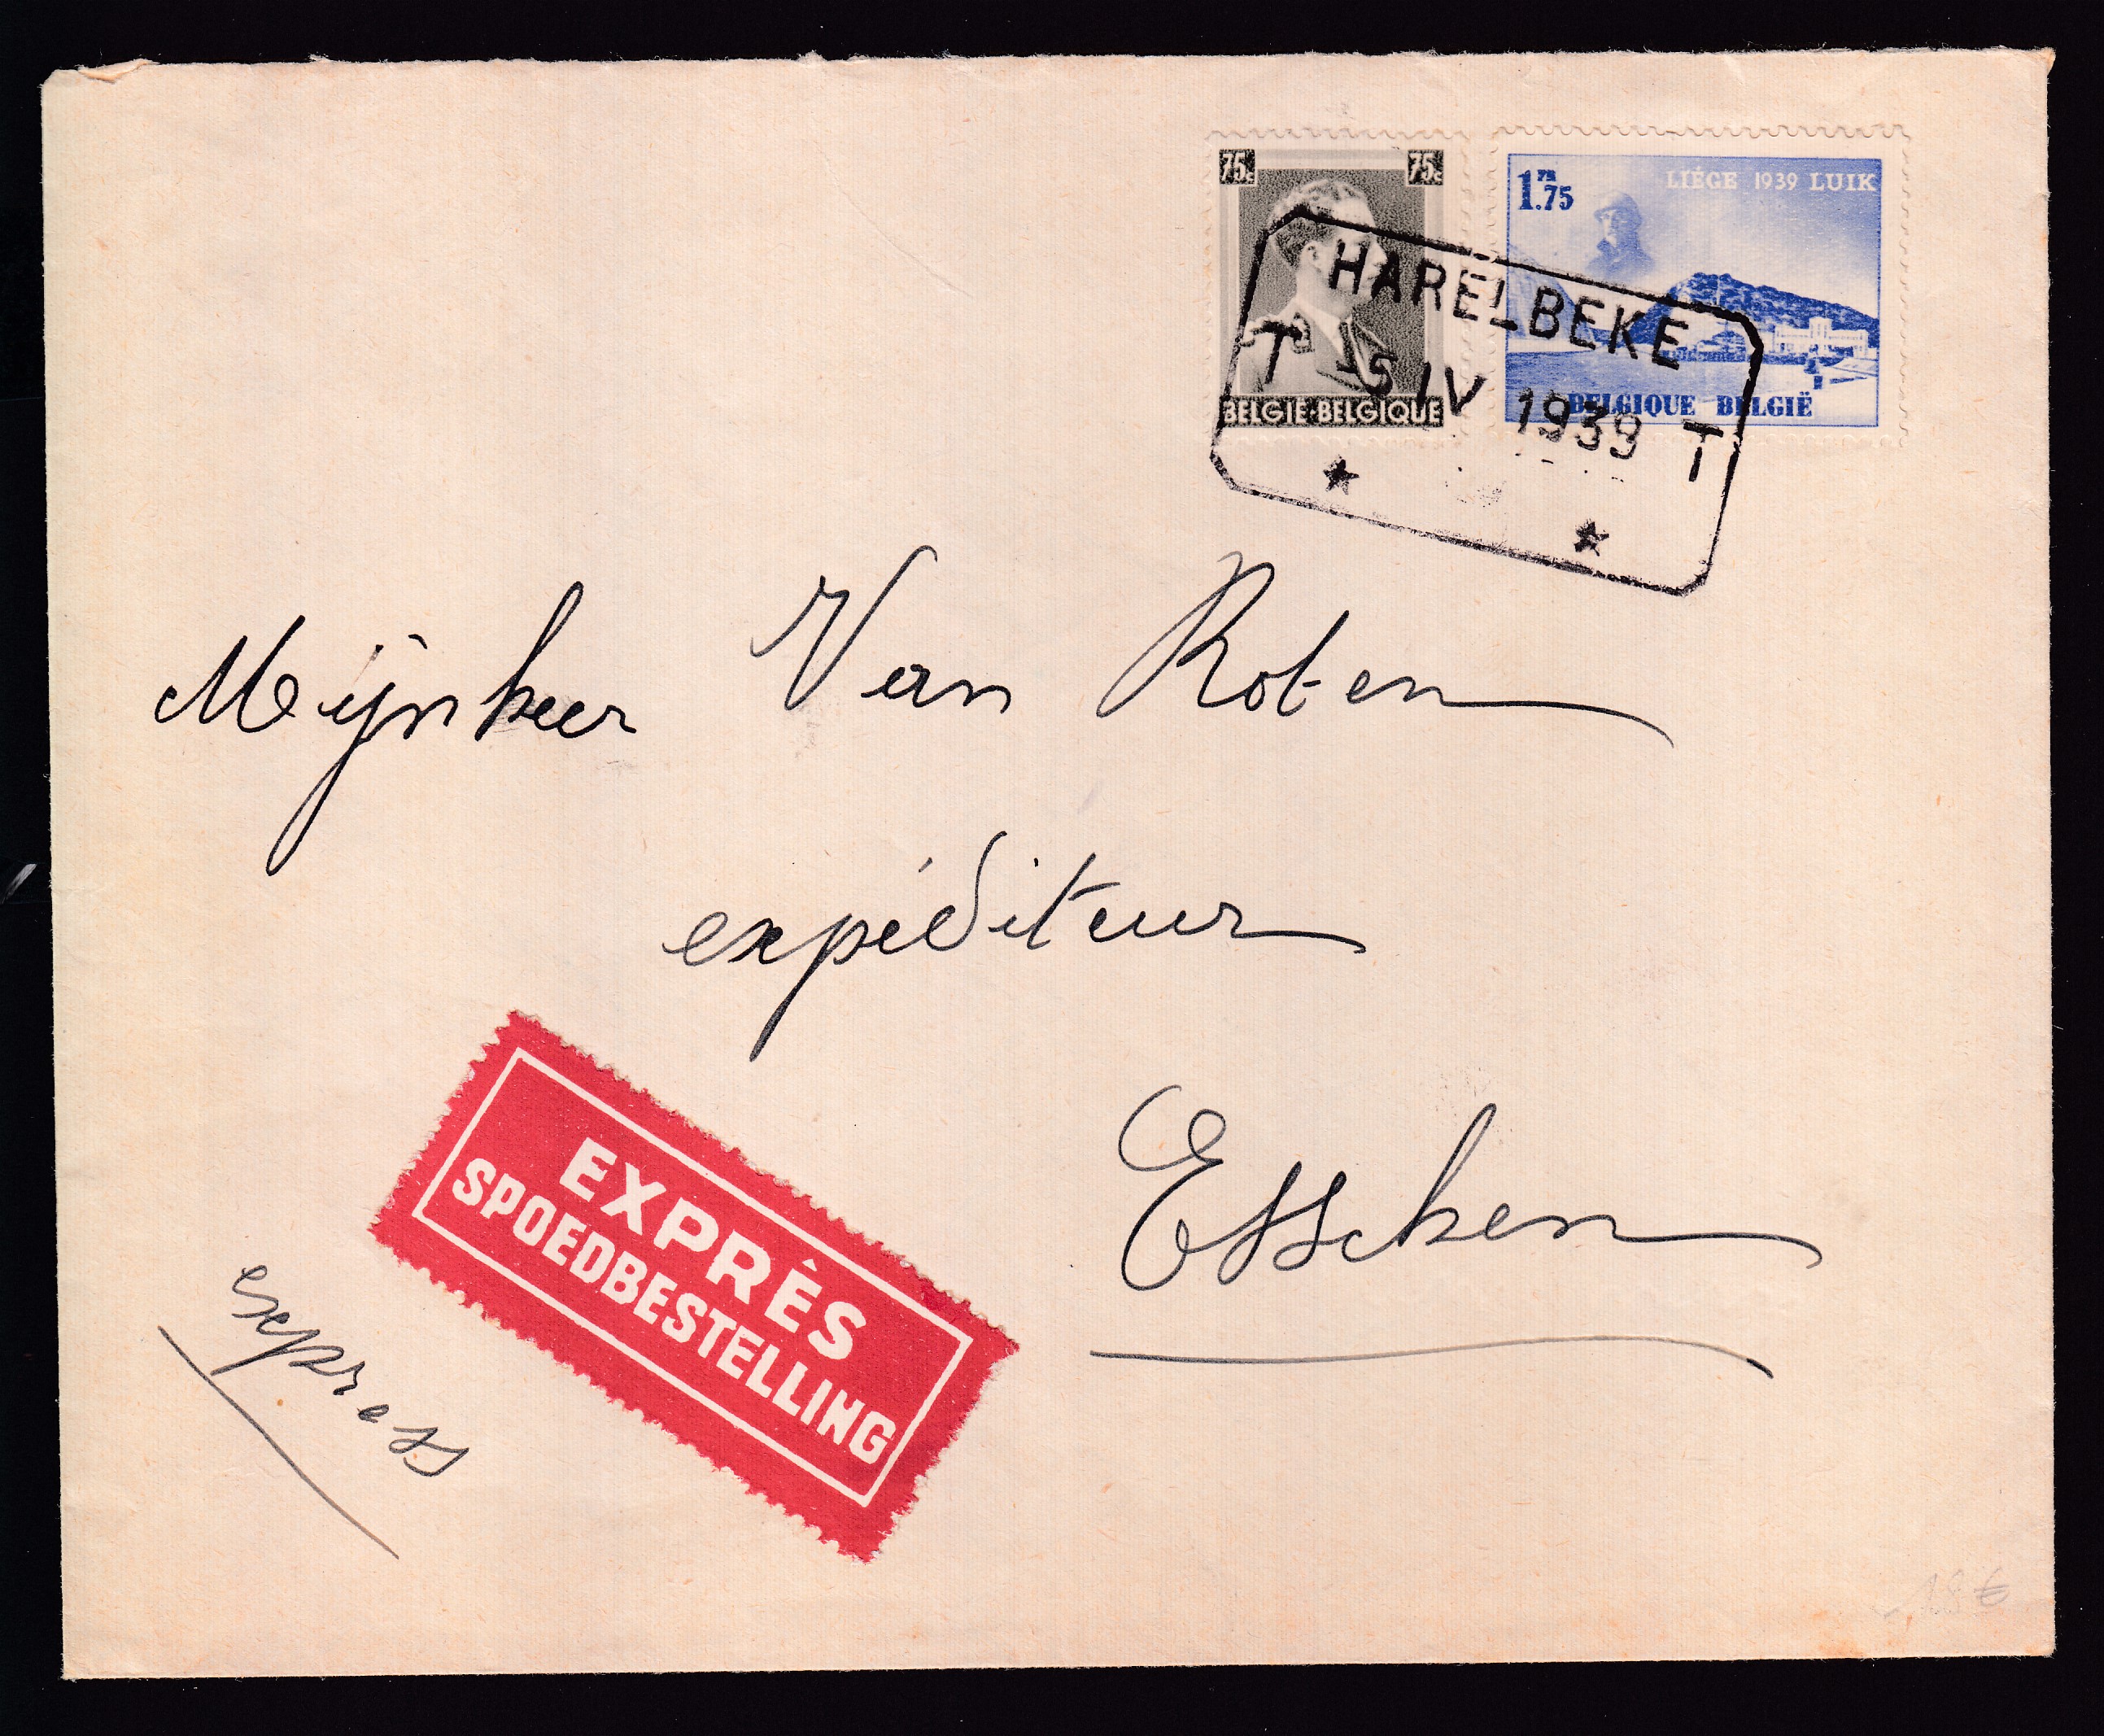 75c 75c
BELGIË·BELGIQUE
1FR.75
LIÉGE 1939 LUIK
BELGIQUE BELGIË
HARELBEKE
T -5 IV 1939 T
Mijnheer Van Roten
expéditeur
Esschen
EXPRÈS
SPOEDBESTELLING
express
18 €